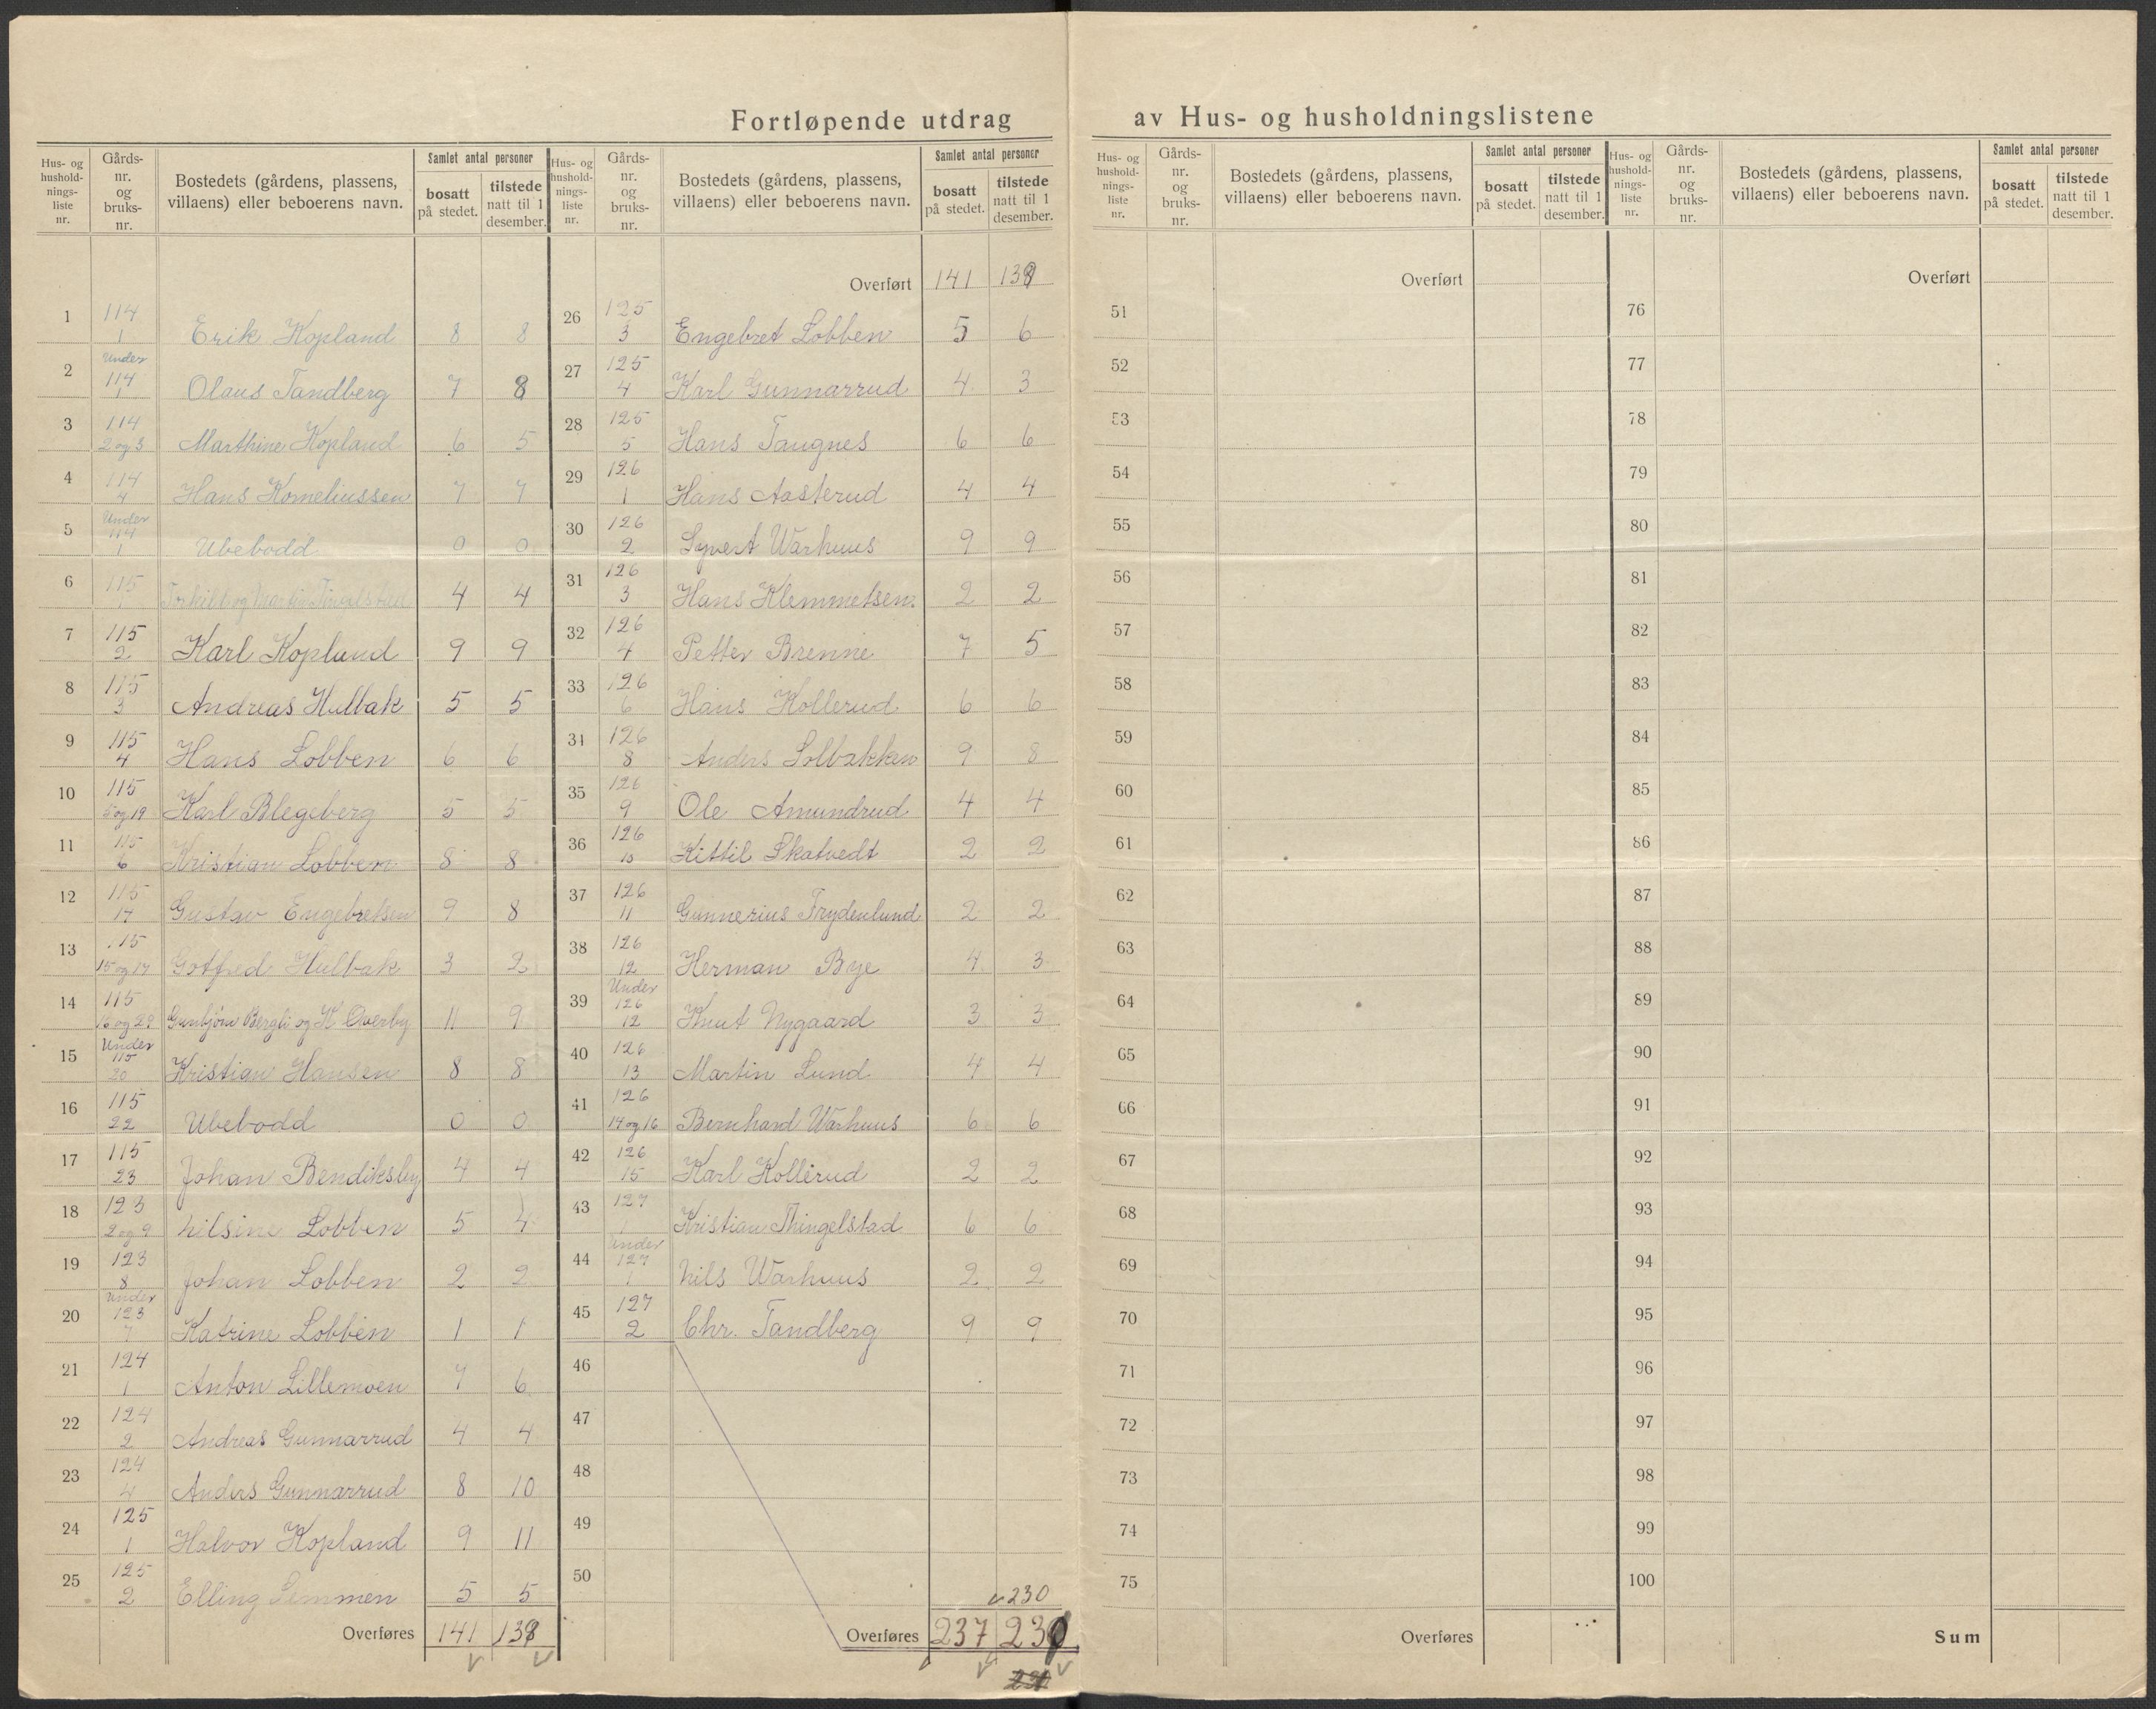 Fortløpende utdrag av Hus- og husholdningslistene
Hus- og hushold- nings- liste nr.
Gårds- nr. og bruks- nr.
Bostedets (gårdens, plassens, villaens) eller beboerens navn.
Samlet antal personer
bosatt på stedet.
tilstede natt til 1 desember.
1 114 1 Erik Kopland 8 8
2 Under 114 1 Olaus Tandberg 7 8
3 114 2 og 3 Marthine Kopland 6 5
4 114 4 Hans Korneliussen 7 7
5 Under 114 1 Ubebodd 0 0
6 115 4 4
7 115 2 Karl Kopland 9 9
8 115 3 Andreas Hulbak 5 5
9 115 4 Hans Lobben 6 6
10 115 5 og 19 Karl Blegeberg 5 5
11 115 6 Kristian Lobben 8 8
12 115 14 Gustav Engebretsen 9 8
13 115 15 og 17 Gotfred Hulbak 3 2
14 115 16 og 29 Gunbjørn Bergli og K Overby 11 9
15 Under 115 20 Kristian Hansen 8 8
16 115 22 Ubebodd 0 0
17 115 23 Johan Bendiksby 4 4
18 123 2 og 9 Nilsine Lobben 5 4
19 123 8 Johan Lobben 2 2
20 Under 123 7 Katrine Lobben 1 1
21 124 1 Anton Lillemoen 7 6
22 124 2 Andreas Gunnarrud 4 4
23 124 4 Anders Gunnarrud 8 10
24 125 1 Halvor Kopland 9 11
25 125 2 Elling Semmen 5 5
Overføres 141 138
Hus- og hushold- nings- liste nr.
Gårds- nr. og bruks- nr.
Bostedets (gårdens, plassens, villaens) eller beboerens navn.
Samlet antal personer
bosatt på stedet.
tilstede natt til 1 desember.
Overført 141 138
26 125 3 Engebret Lobben 5 6
27 125 4 Karl Gunnarrud 4 3
28 125 5 Hans Taugnes 6 6
29 126 1 Hans Aasterud 4 4
30 126 2 Syvert Warhuus 9 9
31 126 3 Hans Klemmetsen 2 2
32 126 4 Petter Brenne 7 5
33 126 6 Hans Kollerud 6 6
34 126 8 Anders Solbakken 9 8
35 126 9 Ole Amundrud 4 4
36 126 10 Kittil Skatvedt 2 2
37 126 11 Gunnerius Frydenlund 2 2
38 126 12 Herman Bye 4 3
39 Under 126 12 Knut Nygaard 3 3
40 126 13 Martin Lund 4 4
41 126 14 og 16 Bernhard Warhuus 6 6
42 126 15 Karl Kollerud 2 2
43 127 1 Kristian Thingelstad 6 6
44 Under 127 1 Nils Warhuus 2 2
45 127 2 Chr. Tandberg 9 9
46
47
48
49
50
230
Overføres 237 230
Hus- og hushold- nings- liste nr.
Gårds- nr. og bruks- nr.
Bostedets (gårdens, plassens, villaens) eller beboerens navn.
Samlet antal personer
bosatt på stedet.
tilstede natt til 1 desember.
Overført
51
52
53
54
55
56
57
58
59
60
61
62
63
64
65
66
67
68
69
70
71
72
73
74
75
Overføres
Hus- og hushold- nings- liste nr.
Gårds- nr. og bruks- nr.
Bostedets (gårdens, plassens, villaens) eller beboerens navn.
Samlet antal personer
bosatt på stedet.
tilstede natt til 1 desember.
Overført
76
77
78
79
80
81
82
83
84
85
86
87
88
89
90
91
92
93
94
95
96
97
98
99
100
Sum